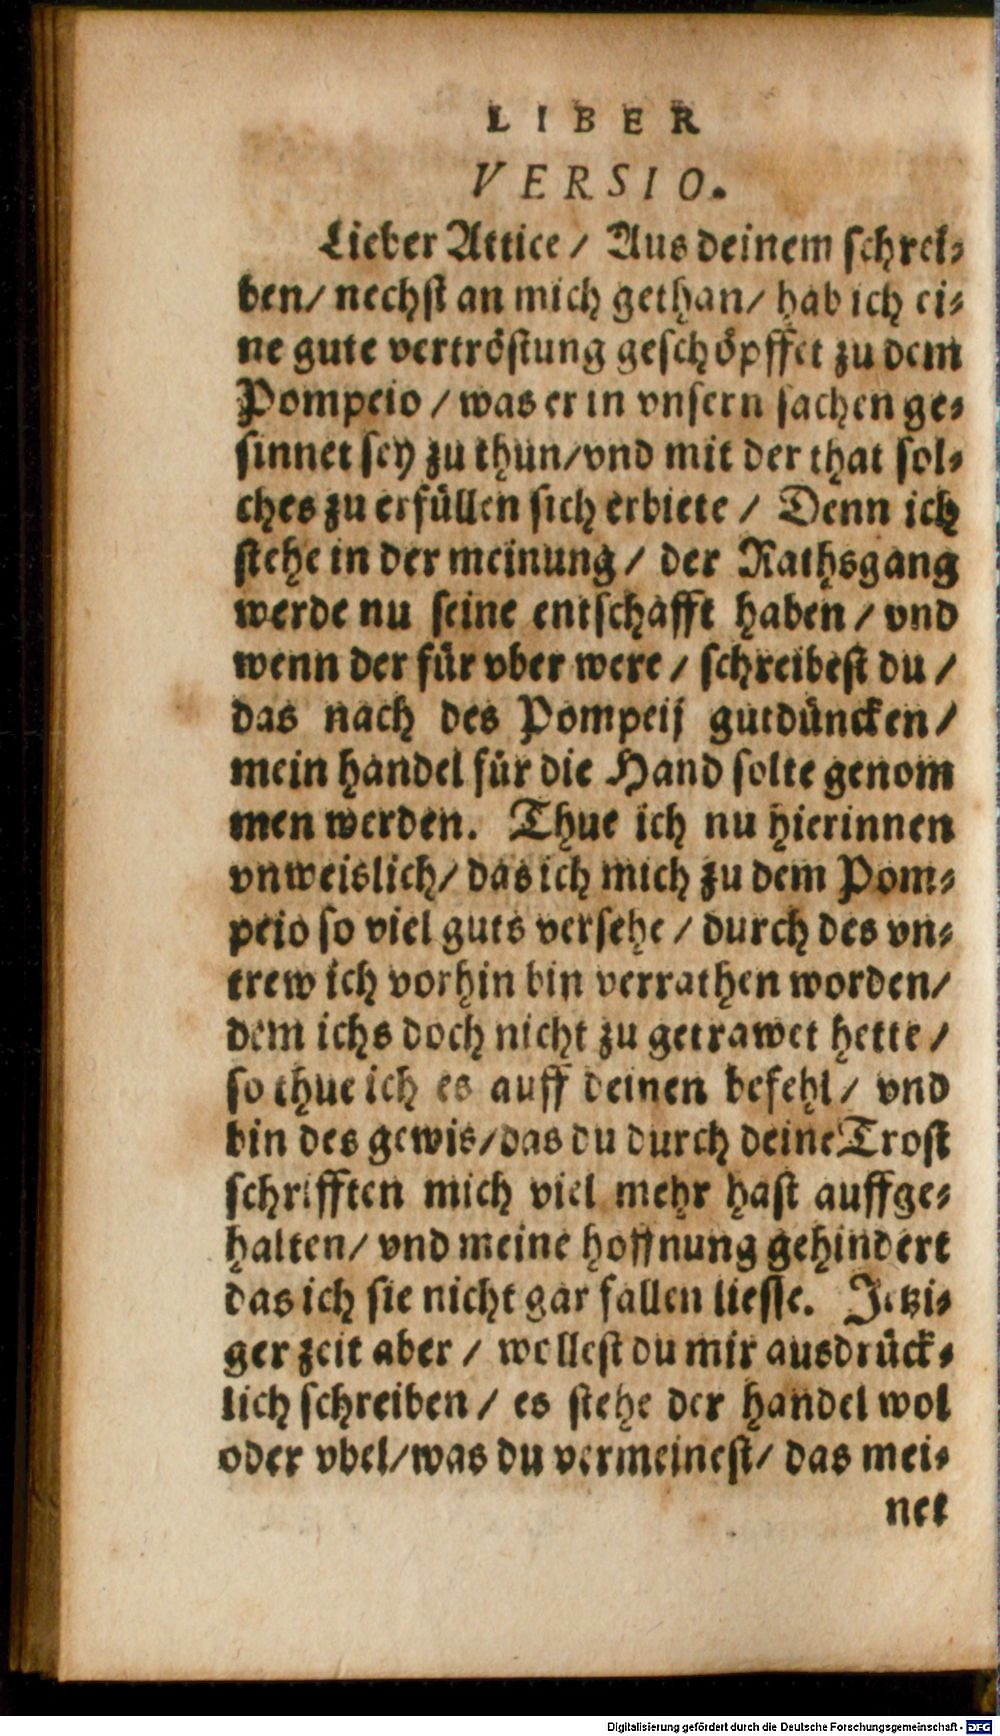 LIBER
VERSIO.
Lieber Attice / Aus deinem schrei-
ben / nechst an mich gethan / hab ich ei-
ne gute vertröstung geschöpffet zu dem
Pompeio / was er in vnsern sachen ge-
sinnet sey zu thun / vnd mit der that sol-
ches zu erfüllen sich erbiete / Denn ich
stehe in der meinung / der Rathsgang
werde nu seine entschafft haben / vnd
wenn der für vber were / schreibest du /
das nach des Pompeij gutdüncken /
mein handel für die Hand solte genom
men werden. Thue ich nu hierinnen
vnweislich / das ich mich zu dem Pom-
peio so viel guts versehe / durch des vn-
trew ich vorhin bin verrathen worden /
dem ichs doch nicht zu getrawet hette /
so thue ich es auff deinen befehl / vnd
bin des gewis / das du durch deine Trost
schrifften mich viel mehr hast auffge-
halten / vnd meine hoffnung gehindert
das ich sie nicht gar fallen liesse. Jetzi-
ger zeit aber / wollest du mir ausdrück-
lich schreiben / es stehe der handel wol
oder vbel / was du vermeinest / das mei-
net
Digitalisierung gefördert durch die Deutsche Forschungsgemeinschaft - DFG